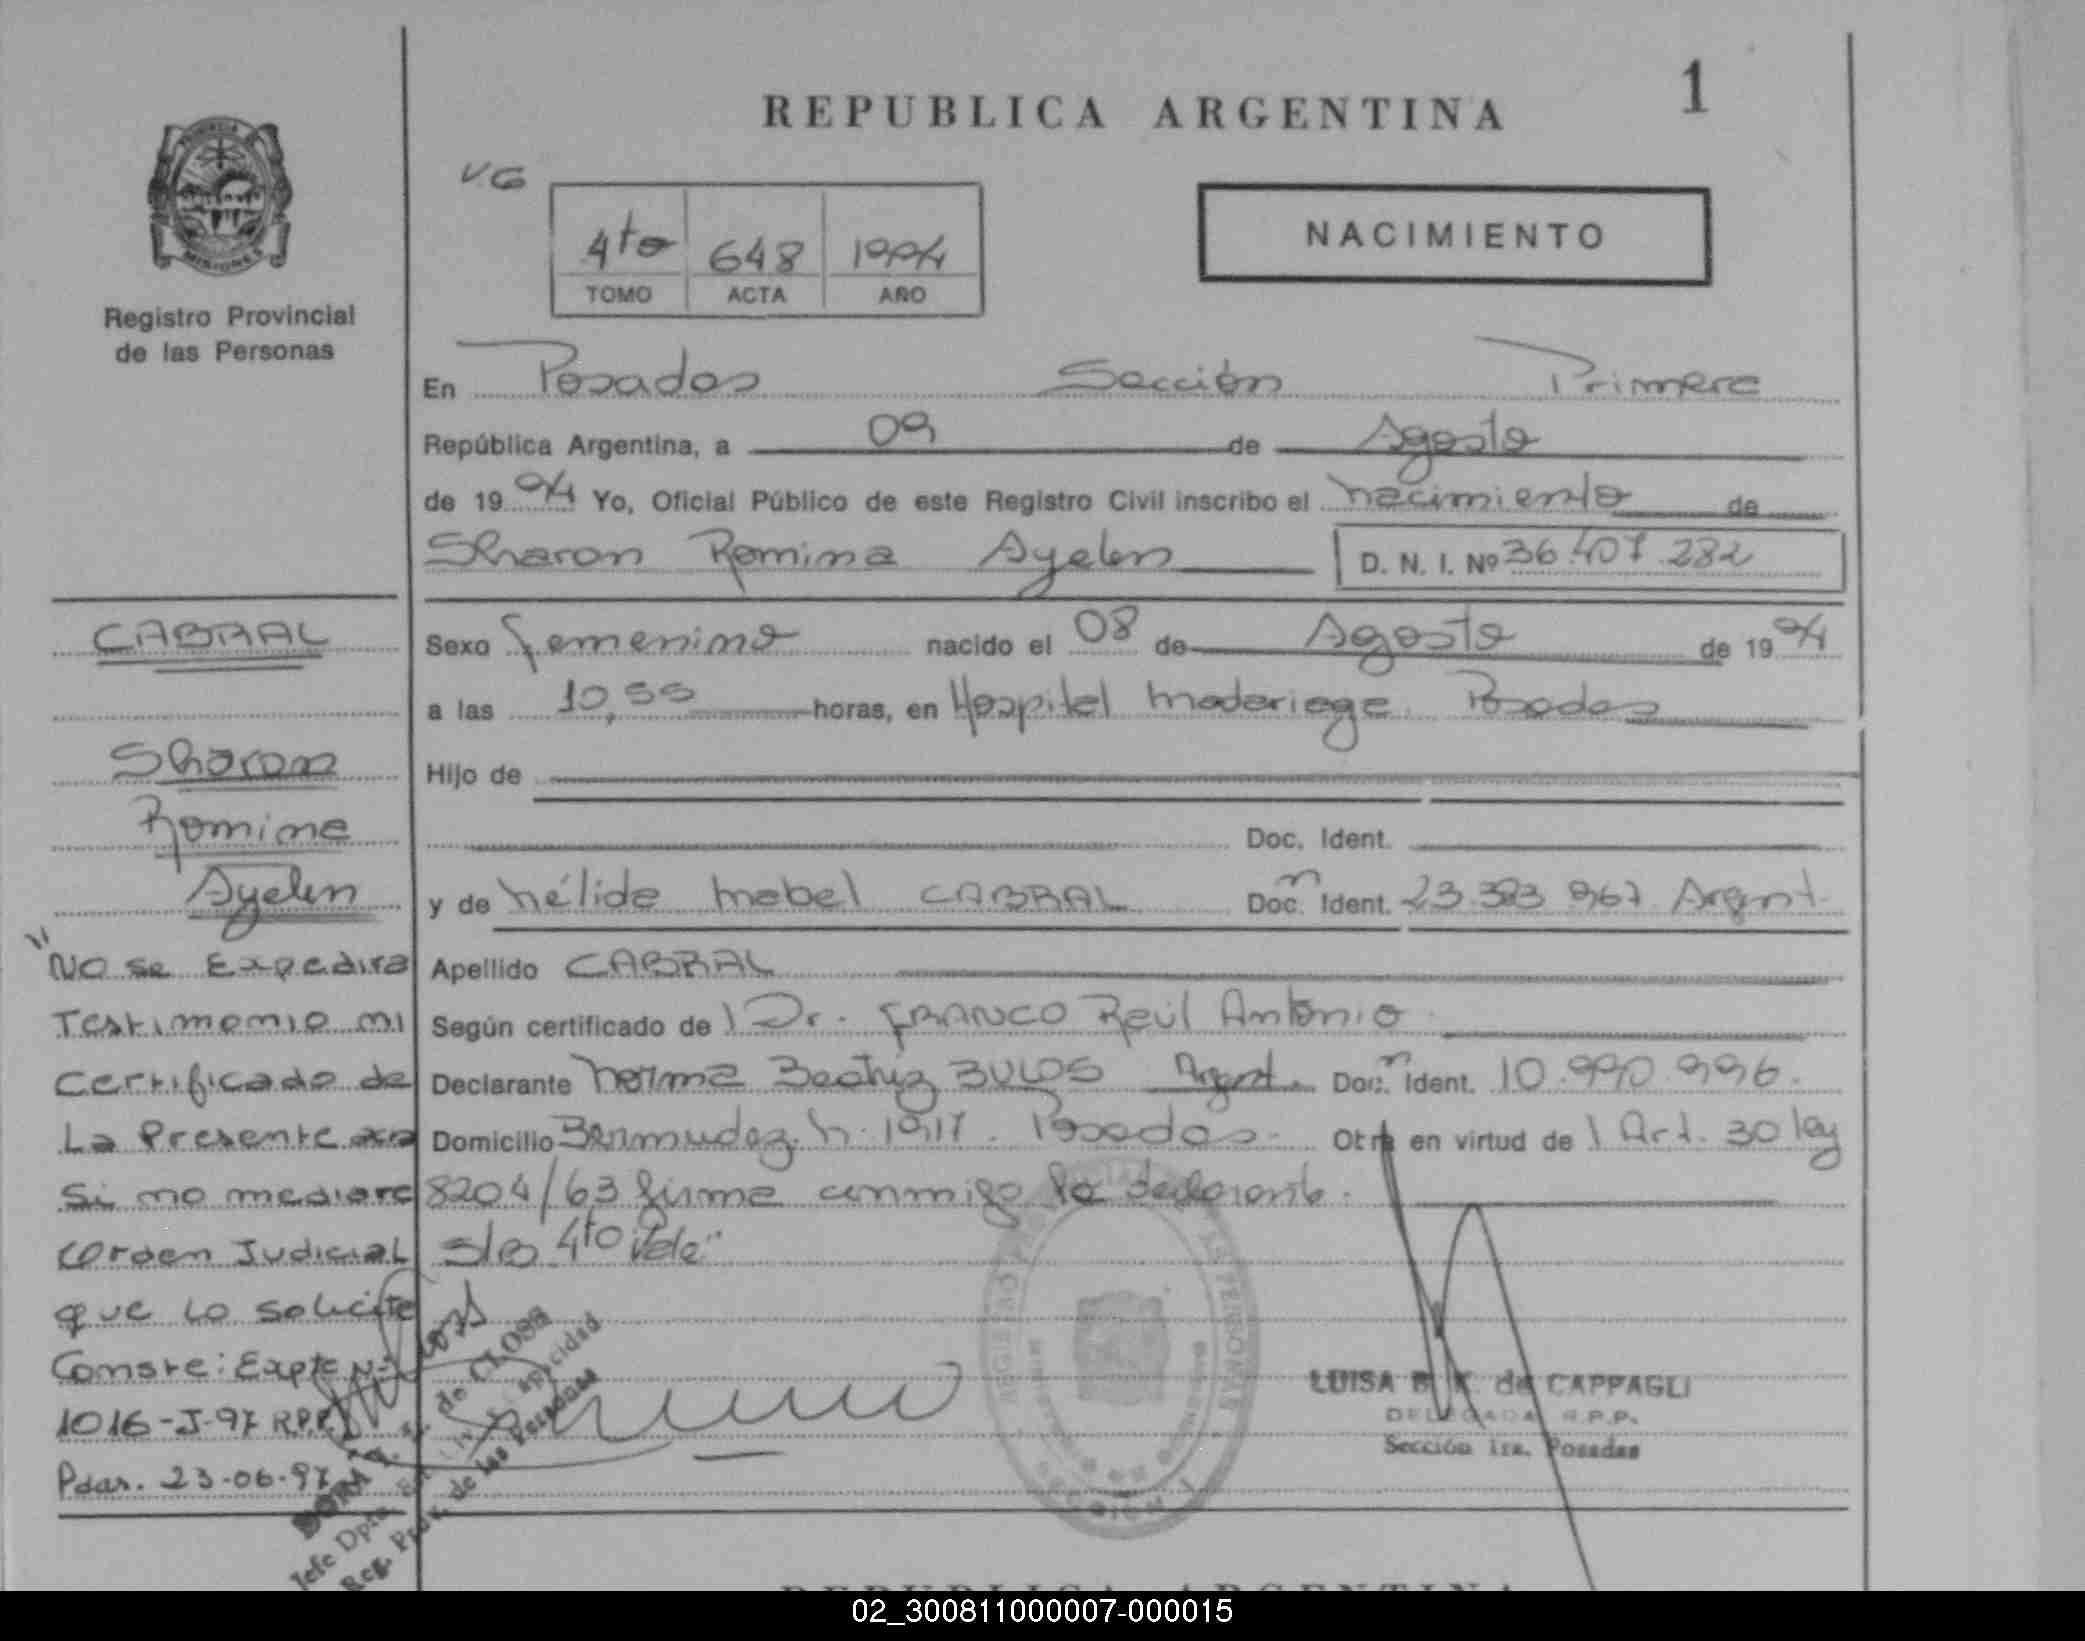 REPUBLICA ARGENTINA
1
V.G
4to 648 1994
TOMO ACTA AÑO
NACIMIENTO
MISIONES
Registro Provincial
de las Personas
En Posadas Sección Primera
República Argentina, a 09 de Agosto
de 1994 Yo, Oficial Público de este Registro Civil inscribo el nacimiento de
Sharon Romina Ayelen D. N. I. Nº 36.407.282
Sexo femenino nacido el 08 de Agosto de 1994
a las 10,55 horas, en Hospital Madariaga. Posadas
Hijo de
Doc. Ident.
y de Nélida Mabel CABRAL Doc. n Ident. 23.383.967 Argent.
Apellido CABRAL
Según certificado de l Dr. FRANCO Raúl Antonio
Declarante Norma Beatriz BULOS Argent. Doc. n Ident. 10.990.996.
Domicilio Bermudez n. 1917. Posadas. Otra en virtud de l Art. 30 ley
8204/63 firma conmigo la declarante.
S/B 4to Vale"
CABRAL
Sharon
Romina
Ayelen
"No se Expedira
Testimonio ni
Certificado de
La Presente
Si no mediare
Orden Judicial
que lo solicite
Conste: Expte Nº
1016-J-97 R.P.P.
Pdas. 23-06-97
de CLOSS
Jefe Dpto.
Reg. Prov. de las Personas
LUISA B. K. de CAPPAGLI
DELEGADA R.P.P.
Sección 1ra. Posadas
REPUBLICA ARGENTINA
02_300811000007-000015